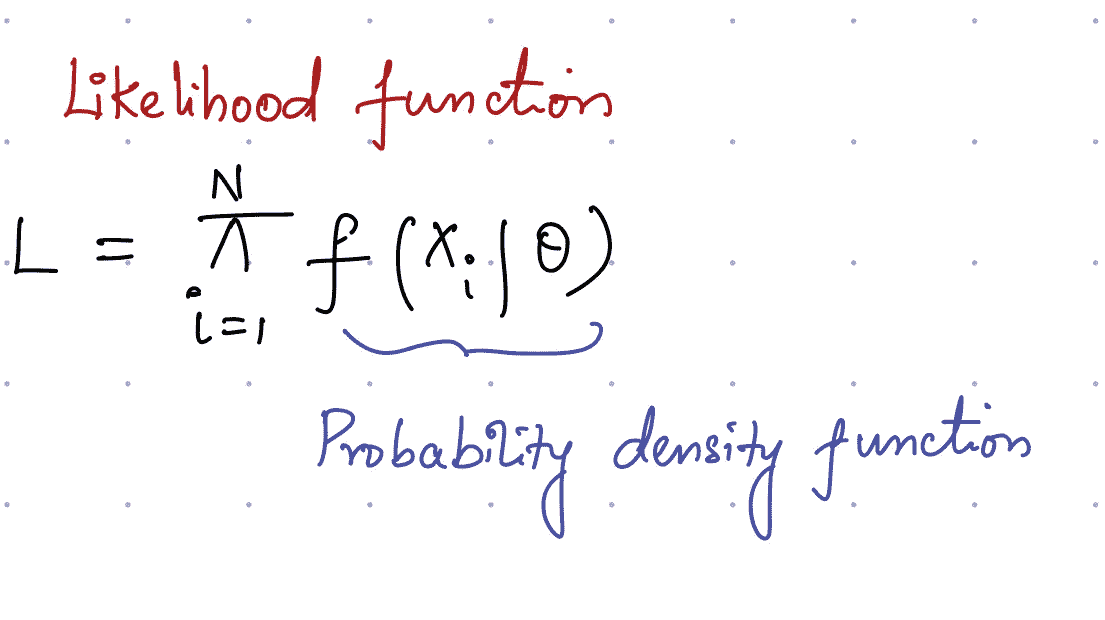 Likelihood function
N
L = π f(xᵢ|θ)
i=1
Probability density function